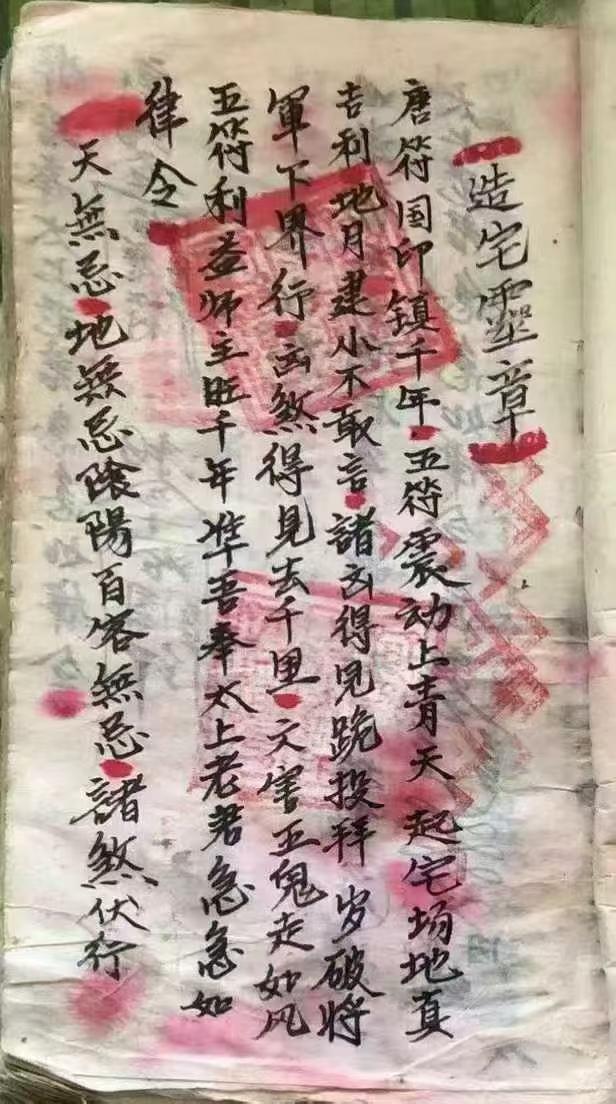 造宅靈章
唐符国印镇千年五符震动上青天起宅场地真
吉利地月建小不敢言諸凶得見跪投拜岁破將
軍下界行凶煞得見去千里文害五鬼走如风
五符利益师主旺千年準吾奉太上老君急急如
律令
天無忌地無忌陰陽百客無忌諸煞伏行